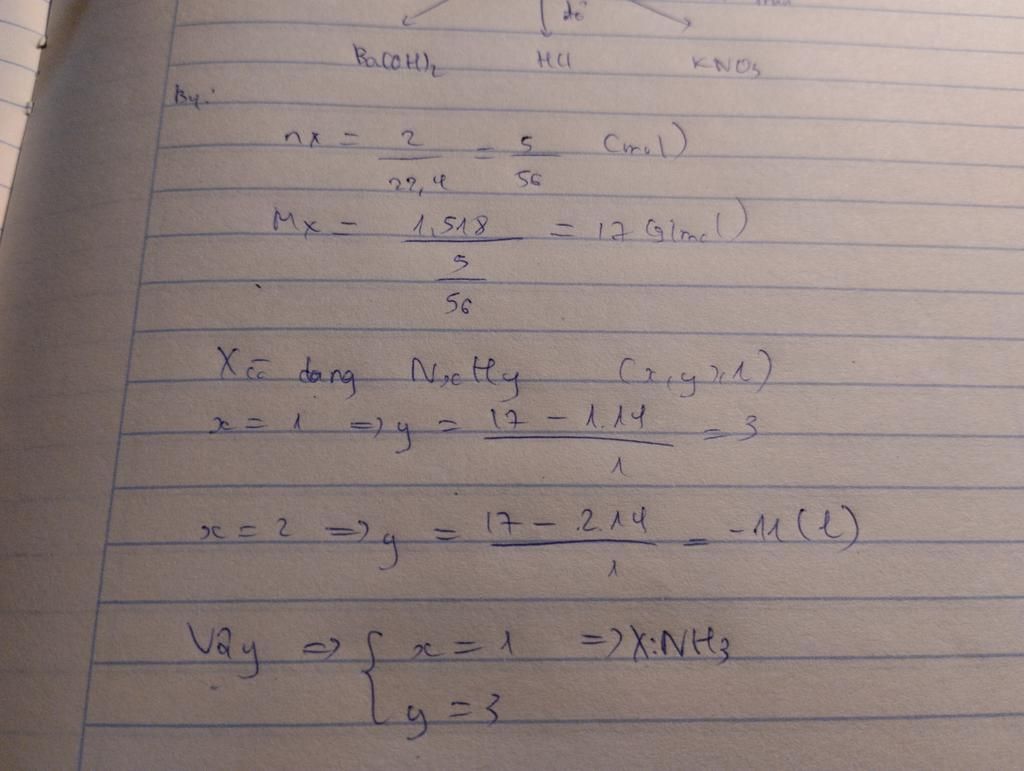 đỏ
Ba(OH)2 HCl KNO3
B4:
nX = 2/22,4 = 5/56 (mol)
MX = 1,518/(5/56) = 17 (g/mol)
X có dạng NxHy (x,y ≥ 1)
x = 1 => y = (17 - 1.14)/1 = 3
x = 2 => y = (17 - 2.14)/1 = -11 (l)
Vậy => { x = 1 => X: NH3
y = 3